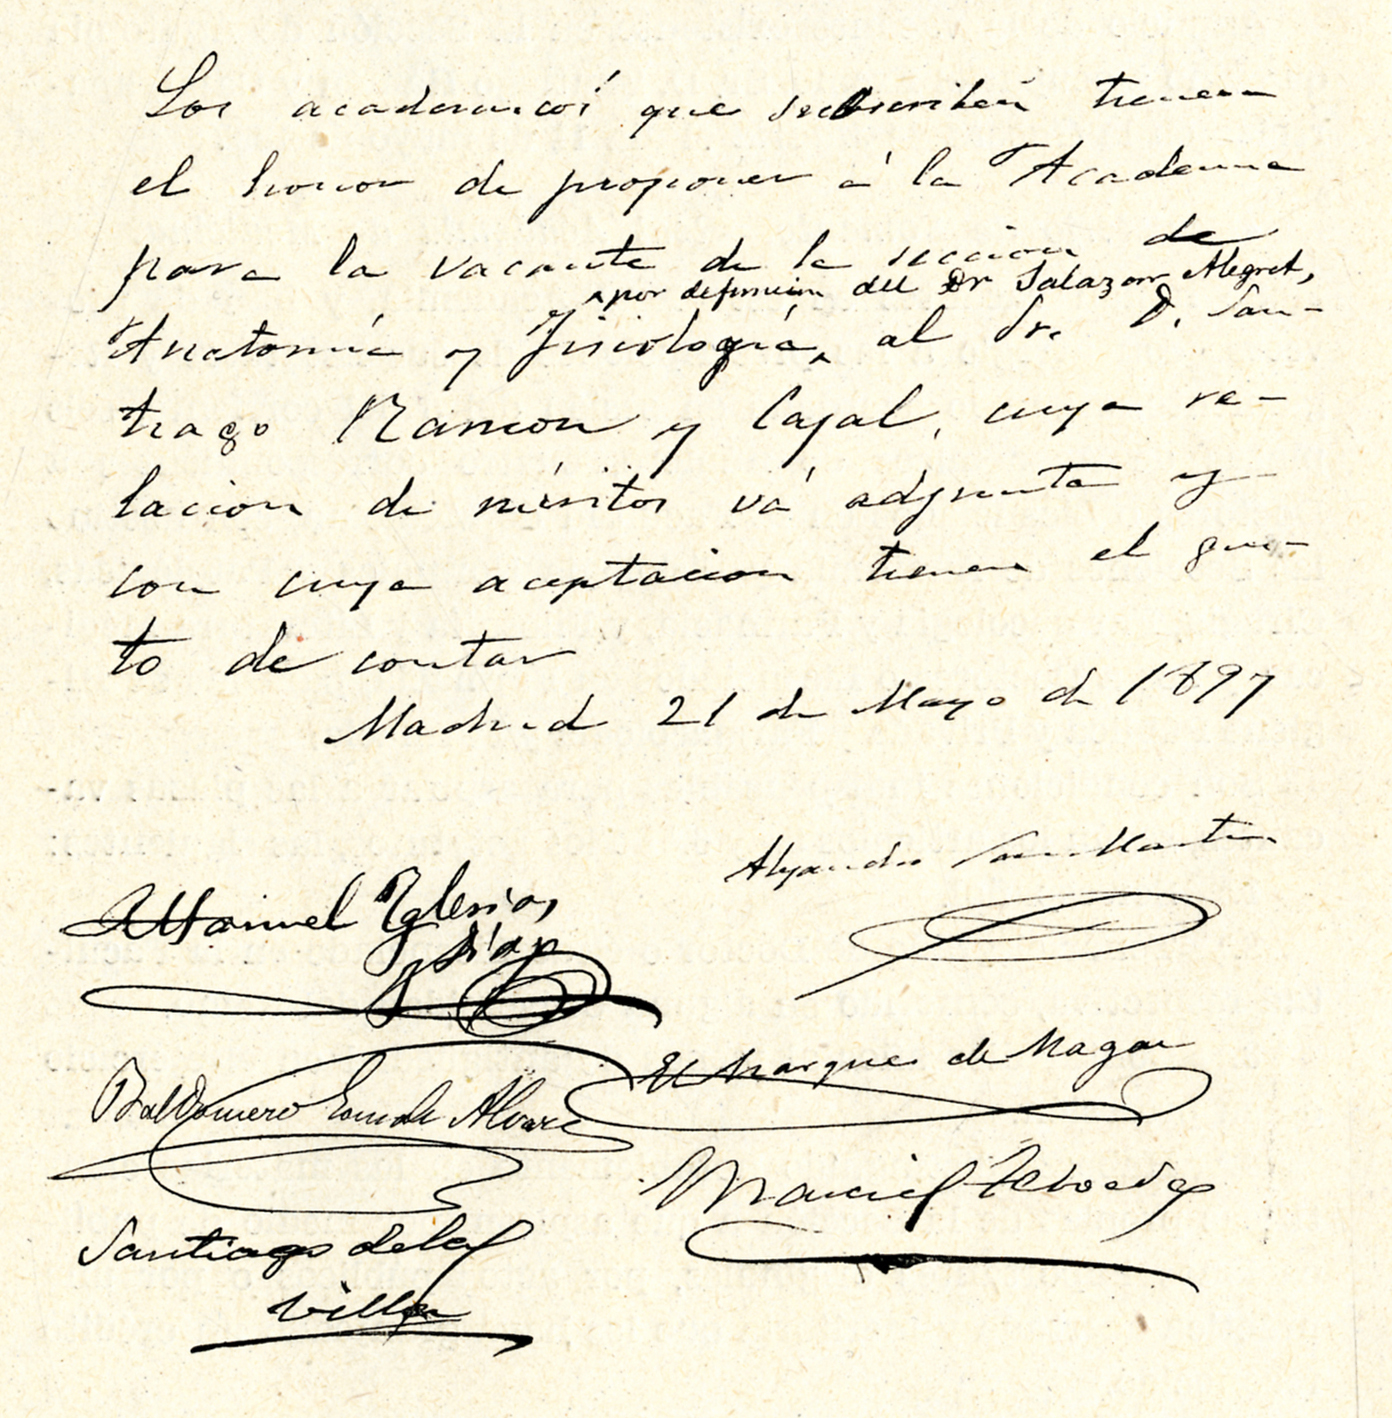 Los academicos que subscriben tienen
el honor de proponer á la Academia
para la vacante de la seccion de
por defuncion del Dr Salazar Alegret,
Anatomía y Fisiología, al Sr. D. San-
tiago Ramon y Cajal, cuya re-
lacion de méritos vá adjunta y
con cuya aceptacion tienen el gus-
to de contar
Madrid 21 de Mayo de 1897
Alejandro San Martin
Manuel Iglesias
y Díaz
El Marques de
Baldomero Gonzalez Alvarez
Marcial Taboada
Santiago de la
Villa